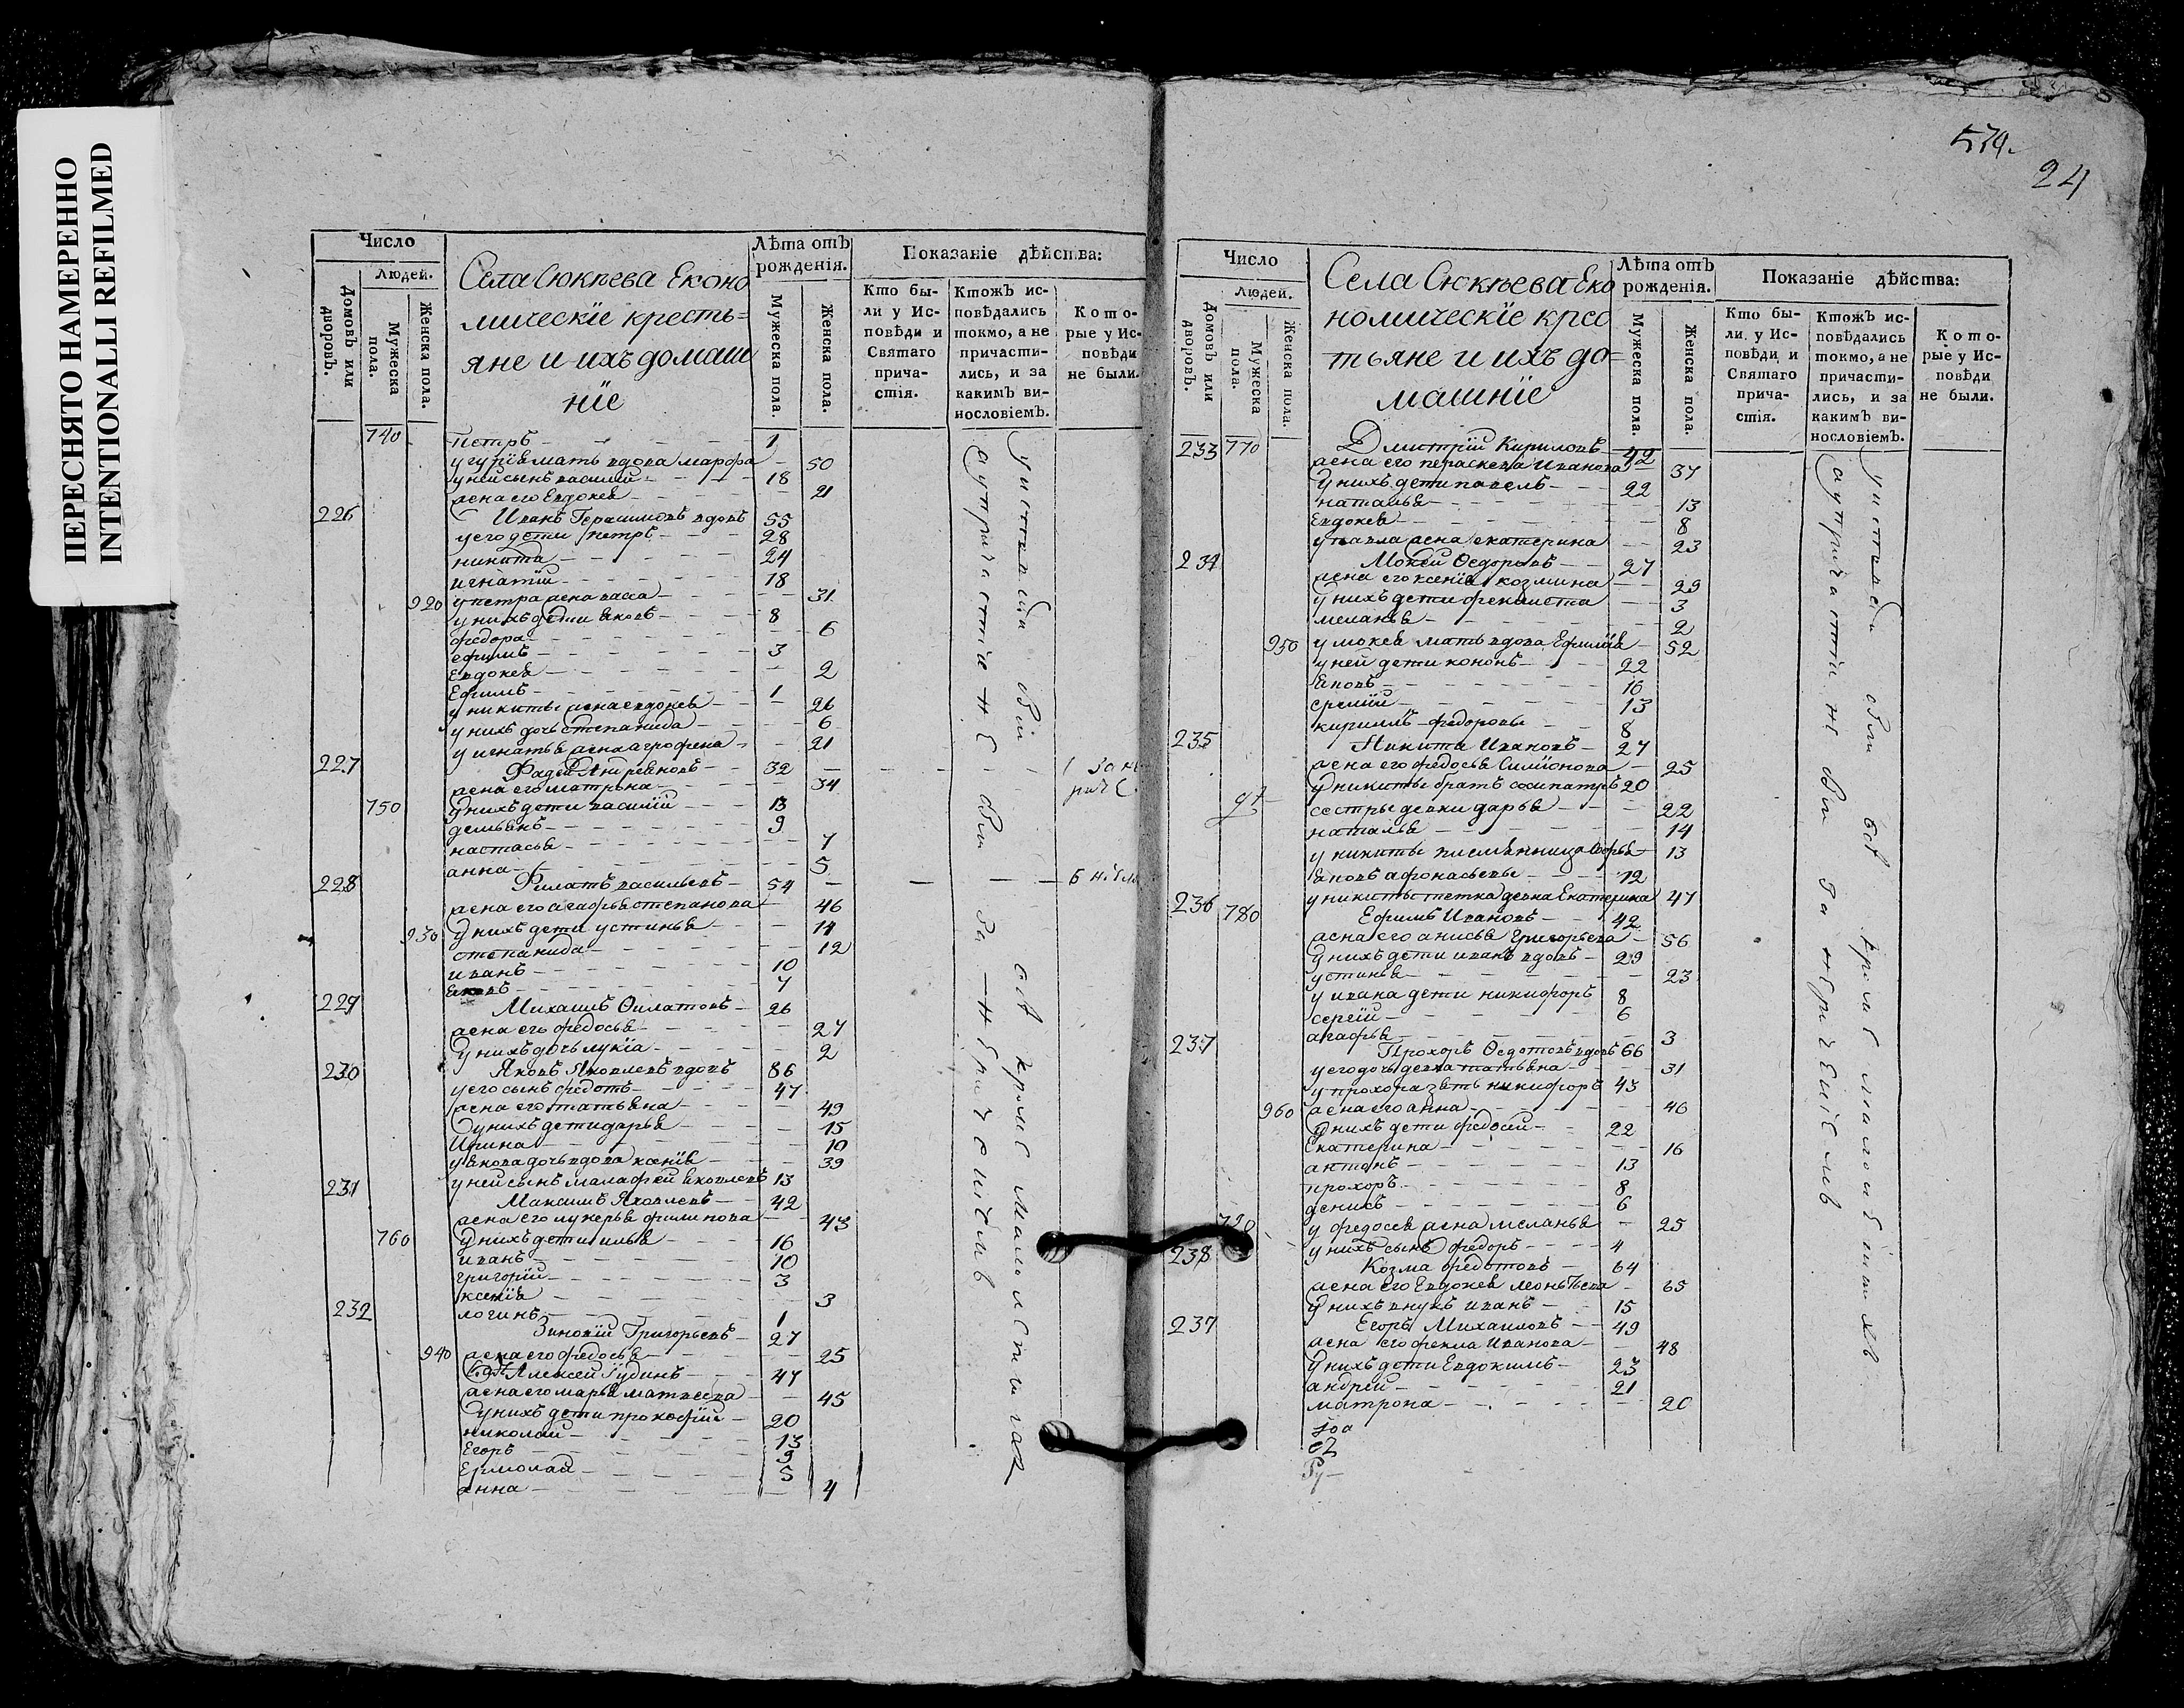 ПЕРЕСНЯТО НАМЕРЕННО
INTENTIONALLI REFILMED
574.
24
Число
Людей.
Домовъ или дворовъ.
Мужеска пола.
Женска пола.
Села Сюкѣева Еконо
мическїе кресть=
яне и ихъ домаш
нїе
Лѣта отъ рожденія.
Мужеска пола.
Женска пола.
Показаніе дѣйства:
Кто бы-
ли у Ис-
повѣди и
Святаго
прича-
стія.
Ктожъ ис-
повѣдались
токмо, а не
причасти-
лись, и за
какимъ ви-
нословіемъ.
Кото-
рые у Ис-
повѣди
не были.
740 петръ 1
у гурїя мать вдова марфа 50
у ней сынъ василий 18
жена его Евдокея 21
226 Иванъ Герасимовъ вдовъ 55
у его дети петръ 28
никита 24
игнатїй 18
920 у петра жена васса 31
у нихъ дети яковъ 8
федора 6
ефимъ 3
Евдокея 2
Ефимъ 1
у никиты жена евдокея 26
у нихъ дочь степанида 6
у игнатья жена агрофена 21
227 Фадей Андреяновъ 32
жена его матрьна 34
750 У нихъ дети василїй 13
демьянъ 9
настасья 7
анна 5
228 Филатъ васильевъ 54
жена его агафья степанова 46
930 У нихъ дети устинья 14
степанида 12
иванъ 10
яковъ 7
229 Михаилъ Филатовъ 26
жена его федосья 27
У нихъ дочь лукїа 2
230 Яковъ Яковлевъ вдовъ 86
у его сынъ федотъ 47
жена его татьяна 49
У нихъ дети дарья 15
Ирина 10
у якова дочь вдова ксенїя 39
у ней сынъ малафей яковлевъ 13
231 Максимъ Яковлевъ 42
жена его лукерья филипова 43
760 У нихъ дети илья 16
иванъ 10
григорїй 3
ксенїя 3
логинъ 1
232 Зиновїй Григорьевъ 27
940 жена его федосья 25
Алексей Гудинъ 47
жена его марья матвеева 45
У нихъ дети прокофїй 20
николай 13
Егоръ 9
Ермолай 5
анна 4
Число
Людей.
Домовъ или дворовъ.
Мужеска пола.
Женска пола.
Села Сюкѣева Еко
номическїе крес
тьяне и ихъ до=
машнїе
Лѣта отъ рожденія.
Мужеска пола.
Женска пола.
Показаніе дѣйства:
Кто бы-
ли у Ис-
повѣди и
Святаго
прича-
стія.
Ктожъ ис-
повѣдались
токмо, а не
причасти-
лись, и за
какимъ ви-
нословіемъ.
Кото-
рые у Ис-
повѣди
не были.
233 770 Дмитрїй Кириловъ 42
жена его параскева Иванова 37
У нихъ дети павелъ 22
наталья 13
Евдокея 8
у павла жена екатерина 23
234 Мокей Федоровъ 27
жена его ксенїя козмина 29
У нихъ дети феклиста 3
меланья 2
950 у мокея мать вдова Ефимїя 52
У ней дети кононъ 22
Яковъ 16
13
кириллъ федоровы 8
235 Никита Ивановъ 27
жена его федосья Симїонова 25
У никиты братъ сосипатръ 20
сестры девки дарья 22
наталья 14
у никиты 13
яковъ афонасьевы 12
у никиты тетка девка Екатерина 47
236 780 Ефимъ Ивановъ 42
жена его анисья Григорьева 56
У нихъ дети иванъ вдовъ 29
устинья 23
у ивана дети никифоръ 8
сергїй 6
агафья 3
237 Прохоръ Федотовъ вдовъ 66
у его дочь девка татьяна 31
у прохора зять никифоръ 43
960 жена его анна 46
У нихъ дети федосий 22
Екатерина 16
антонъ 13
прохоръ 8
денисъ 6
790 у федосея жена меланья 25
у нихъ сынъ федоръ 4
238 Козма федотовъ 64
жена его Евдокея леонтьева 65
У нихъ внукъ иванъ 15
237 Егоръ Михаиловъ 49
жена его фекла Иванова 48
У нихъ дети Евдокимъ 23
андрей 21
матрона 20